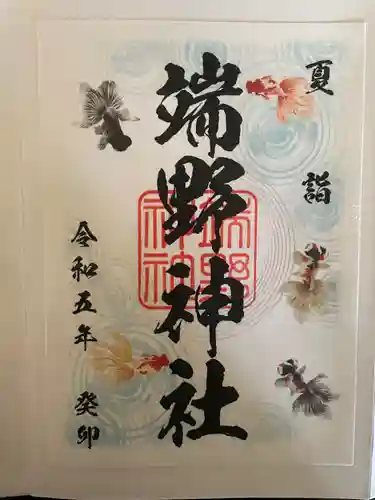 夏詣
端野神社
令和五年 癸卯
端野神社